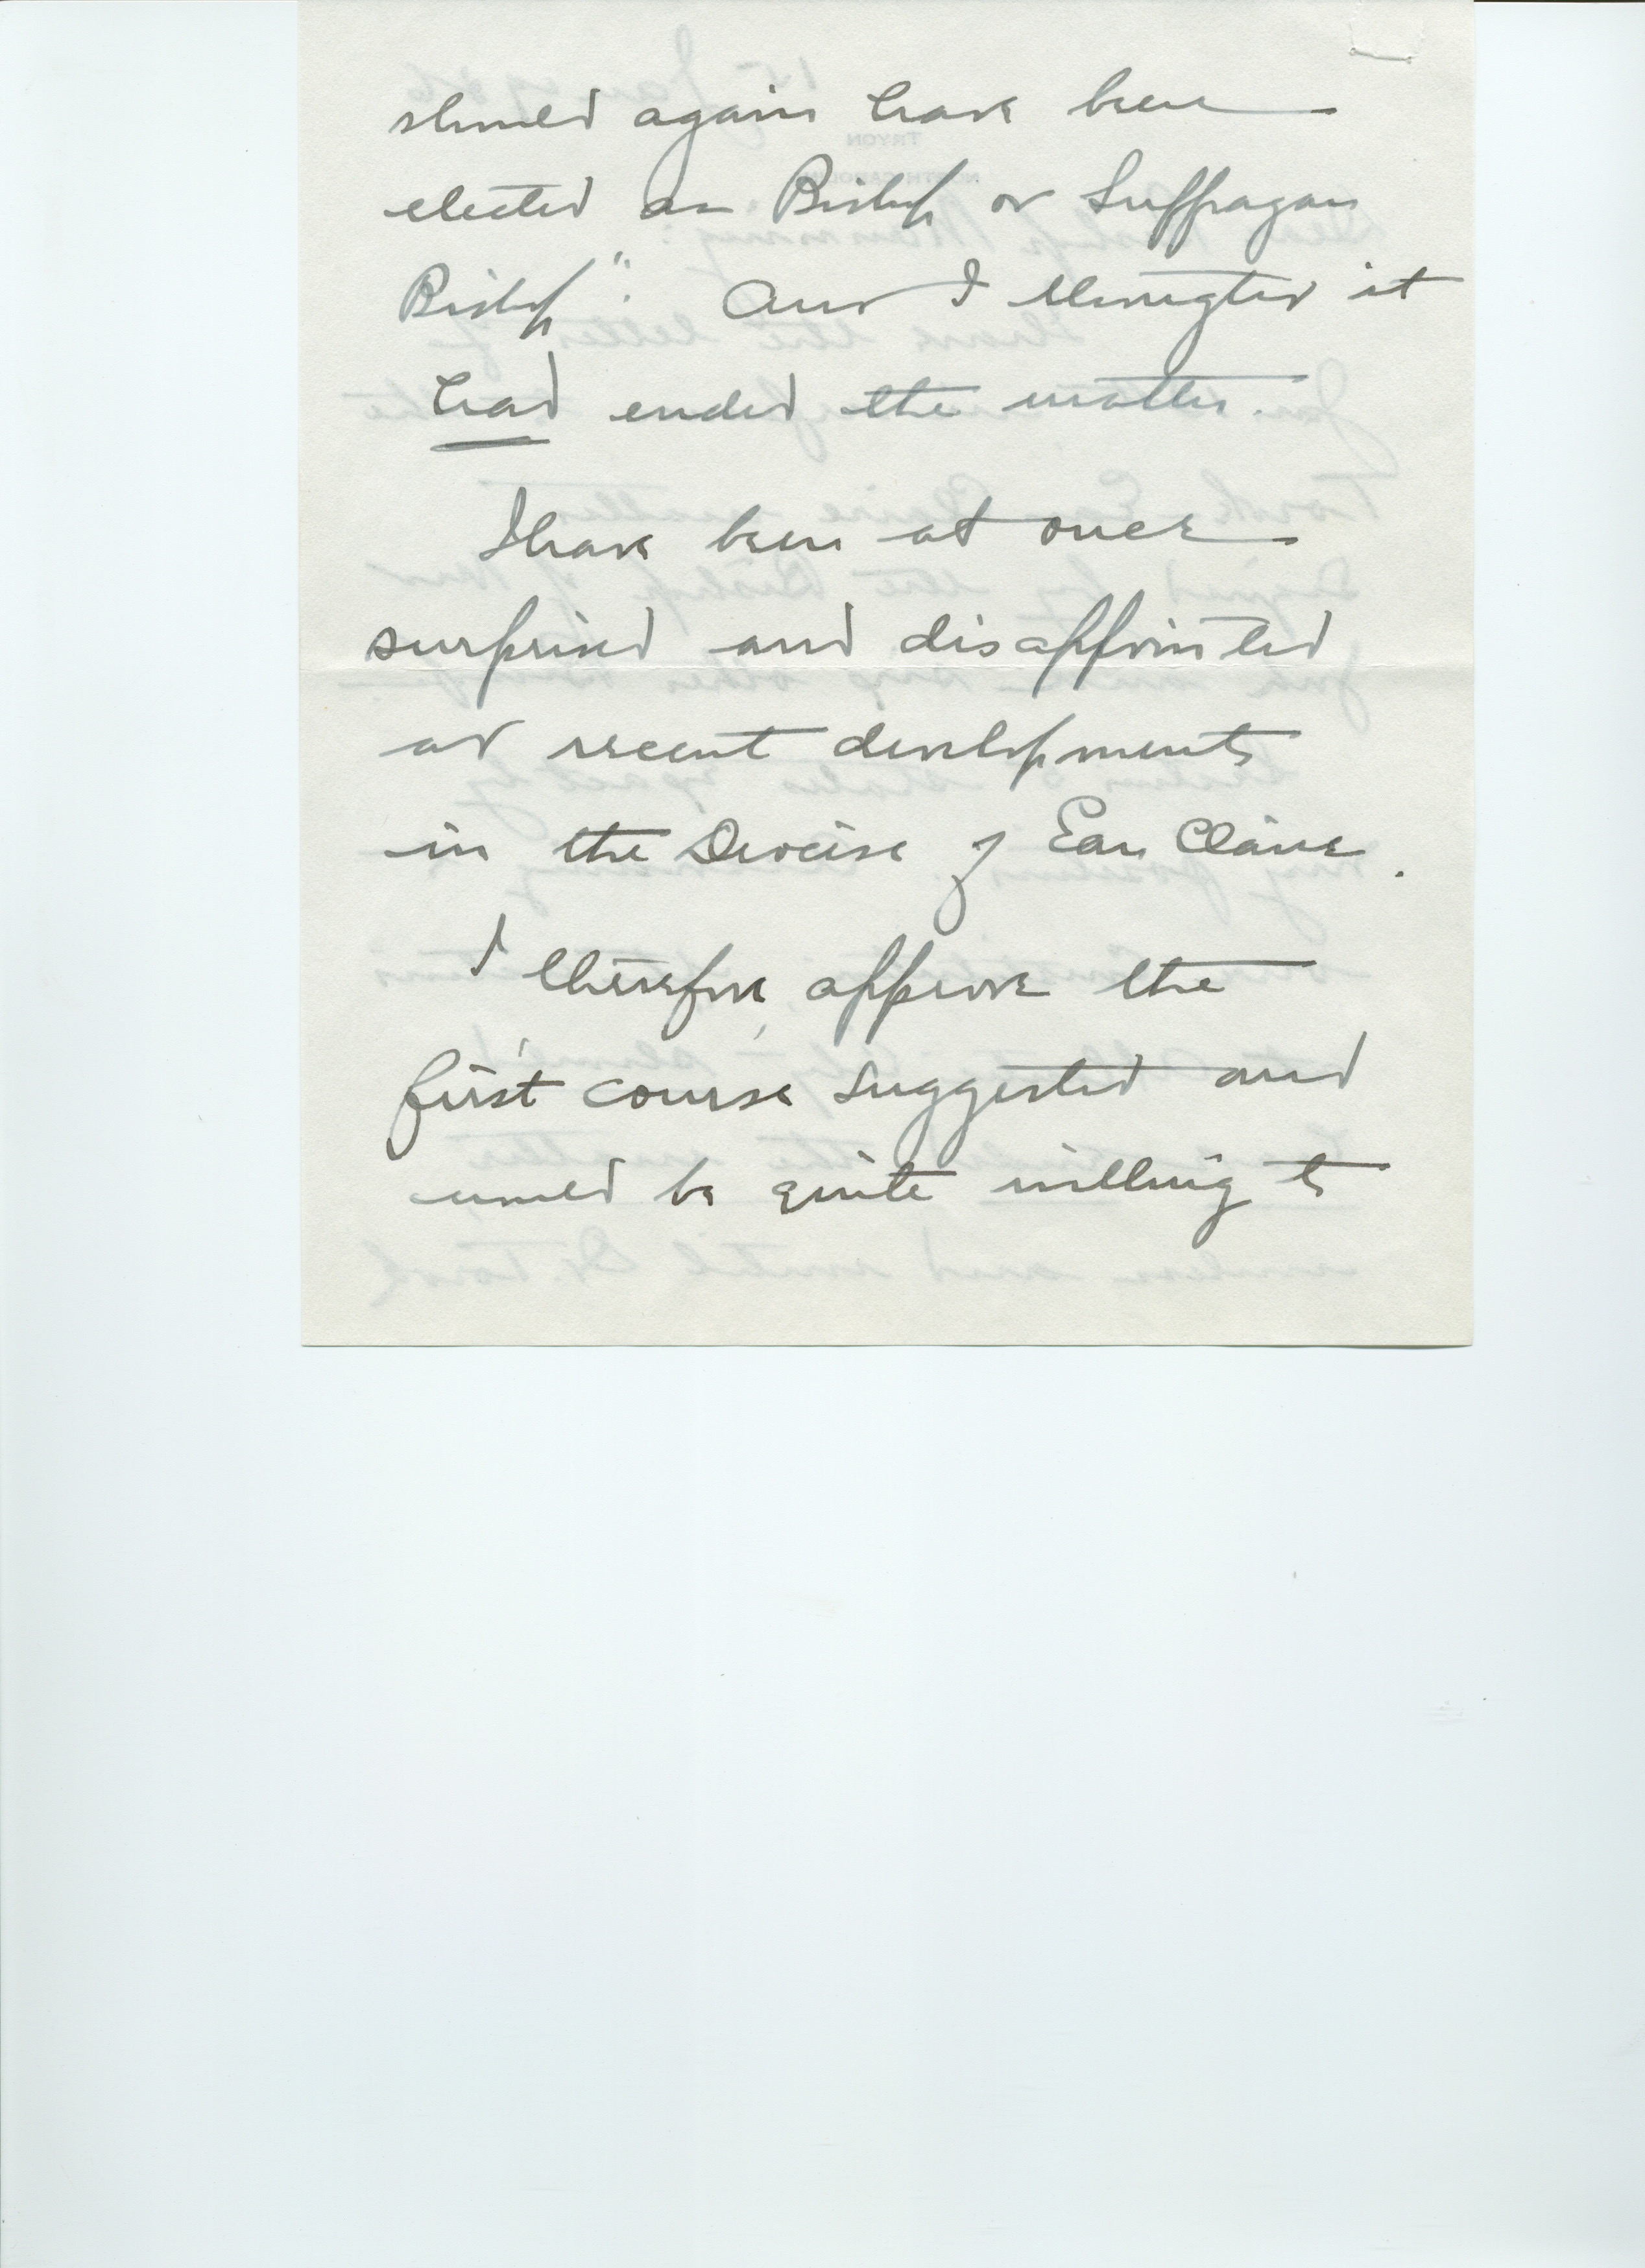 should again have been
elected as Bishop or Suffragan
Bishop". And I thought it
had ended the matter.
I have been at once
surprised and disappointed
at recent developments
in the Diocese of Eau Claire.
I therefore, approve the
first course suggested and
would be quite willing to